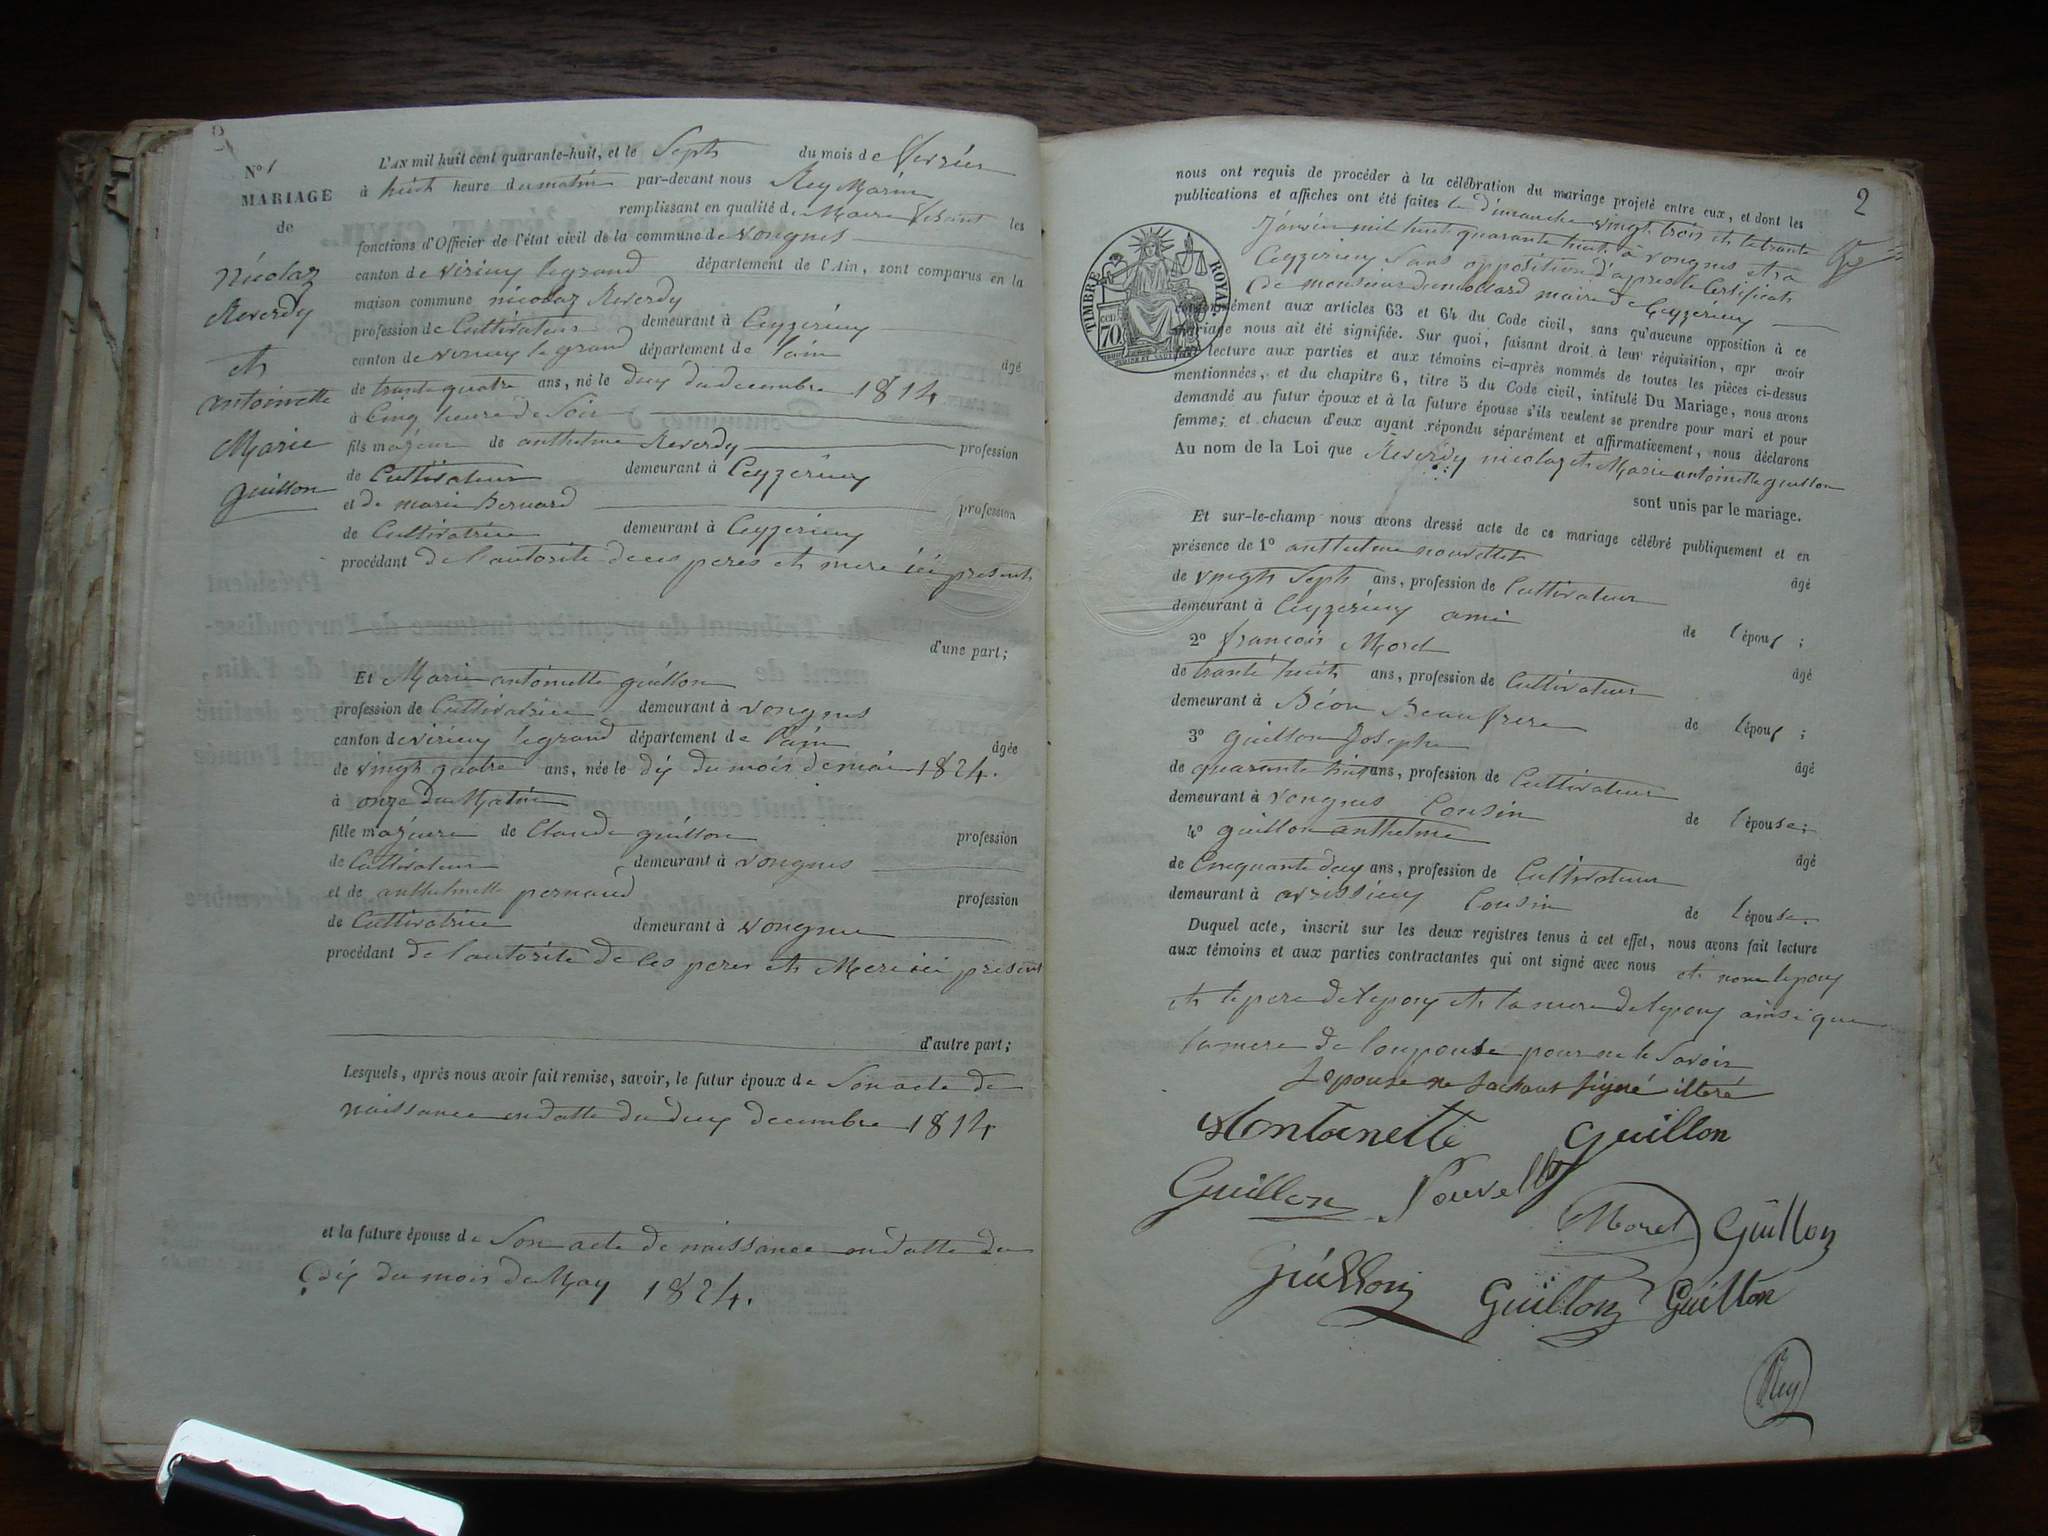 N° 1
MARIAGE
de
Nicolaz
Reverdy
et
antoinette
Marie
guillon
L'AN mil huit cent quarante-huit, et le Septs du mois de fevrier
à huit heure du matin par-devant nous Rey Marin
remplissant en qualité de Maire fesant les
fonctions d'Officier de l'état civil de la commune de vongnes
canton de virieu legrand département de l'Ain, sont comparus en la
maison commune nicolaz Reverdy
profession de Cultivateur demeurant à Ceyzérieu
canton de virieu le grand département de l'ain âgé
de trante quatre ans, né le deux du decembre 1814
à Cinq heure de Soir
fils majeur de anthelme Reverdy profession
de Cultivateur demeurant à Ceyzérieu
et de marie Bernard profession
de Cultivatrice demeurant à Ceyzérieu
procédant de l'autorité de ces peres et mere ici present
d'une part;
Et Marie antoinette guillon
profession de Cultivatrice demeurant à vongnes
canton de virieu legrand département de l'ain âgée
de vingt quatre ans, née le dix du mois de mai 1824.
à onze du Matin
fille majeure de Claude guillon profession
de Cultivateur demeurant à vongnes
et de anthelmette pernaud profession
de Cultivatrice demeurant à vongnes
procédant de l'autorité de ces peres et Mere ici present
d'autre part;
Lesquels, après nous avoir fait remise, savoir, le futur époux de Son acte de
naissance en datte du deux decembre 1814
et la future épouse de Son acte de naissance en datte du
dix du mois de May 1824.
2
nous ont requis de procéder à la célébration du mariage projeté entre eux, et dont les
publications et affiches ont été faites le dimanche vingt trois et le trante
Janvier mil huit quarante huit à vongnes et à
Ceyzérieu Sans opposition d'apres le Certificat
de monsieur dumollard maire de Ceyzérieu
TIMBRE ROYAL
70 cen
conformément aux articles 63 et 64 du Code civil, sans qu'aucune opposition à ce
mariage nous ait été signifiée. Sur quoi, faisant droit à leur réquisition, apr avoir
fait lecture aux parties et aux témoins ci-après nommés de toutes les pièces ci-dessus
mentionnées, et du chapitre 6, titre 5 du Code civil, intitulé Du Mariage, nous avons
demandé au futur époux et à la future épouse s'ils veulent se prendre pour mari et pour
femme; et chacun d'eux ayant répondu séparément et affirmativement, nous déclarons
Au nom de la Loi que Reverdy nicolaz et Marie antoinette guillon
sont unis par le mariage.
Et sur-le-champ nous avons dressé acte de ce mariage célébré publiquement et en
présence de 1° anthelme nouvellet âgé
de vingt Sept ans, profession de Cultivateur
demeurant à Ceyzérieu ami de l'époux ;
2° françois Morel âgé
de trante huit ans, profession de Cultivateur
demeurant à Béon Beaufrere de l'époux ;
3° guillon Joseph âgé
de quarante huit ans, profession de Cultivateur
demeurant à vongnes Cousin de l'épouse;
4° guillon anthelme âgé
de Cinquante deux ans, profession de Cultivateur
demeurant à avrissieu Cousin de l'épouse.
Duquel acte, inscrit sur les deux registres tenus à cet effet, nous avons fait lecture
aux témoins et aux parties contractantes qui ont signé avec nous et non lepoux
et le pere de lepoux et la mere de lepoux ainsi que
la mere de lonpouse pour ne le Savoir
Lepouse ne sachant signé illeré
Antoinette Guillon
Guillon Nouvellet
Morel Guillon
Guillon Guillon Guillon
Rey